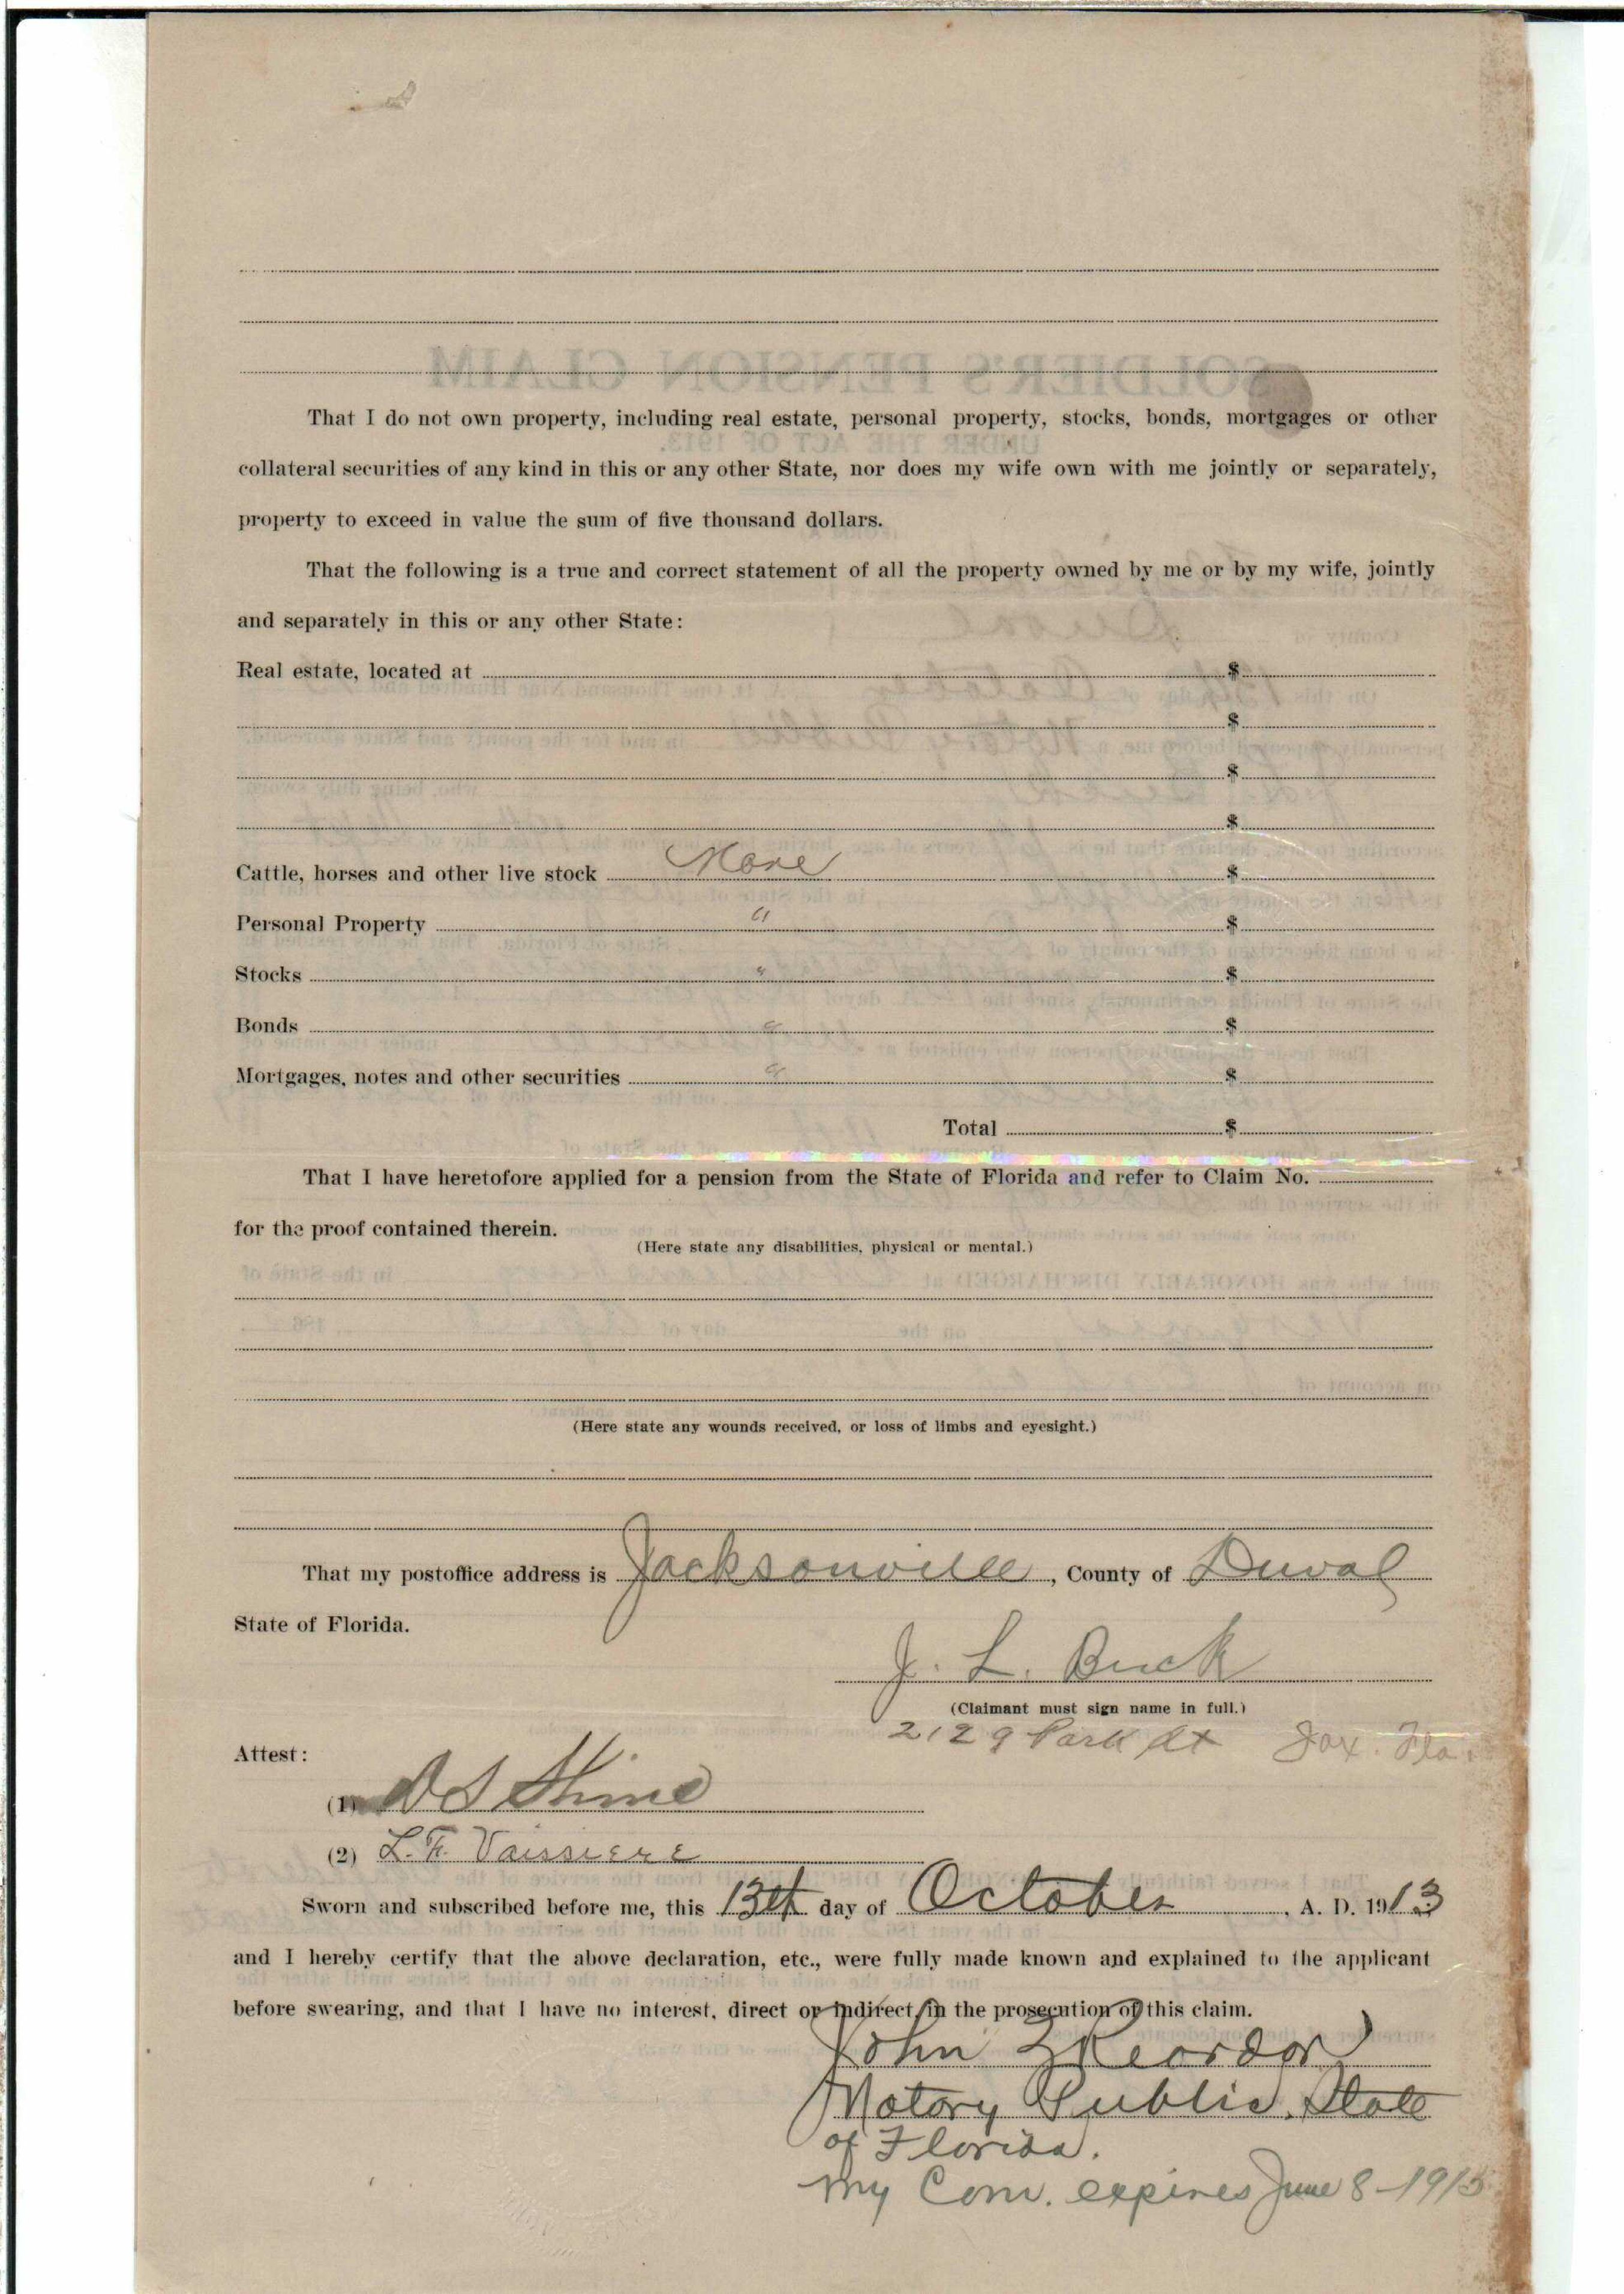 That I do not own property, including real estate, personal property, stocks, bonds, mortgages or other
collateral securities of any kind in this or any other State, nor does my wife own with me jointly or separately,
property to exceed in value the sum of five thousand dollars.
That the following is a true and correct statement of all the property owned by me or by my wife, jointly
and separately in this or any other State:
Real estate, located at $
$
$
$
Cattle, horses and other live stock None $
Personal Property " $
Stocks " $
Bonds " $
Mortgages, notes and other securities " $
Total $
That I have heretofore applied for a pension from the State of Florida and refer to Claim No.
for the proof contained therein.
(Here state any disabilities, physical or mental.)
(Here state any wounds received, or loss of limbs and eyesight.)
That my postoffice address is Jacksonville, County of Duval
State of Florida.
J. L. Buck
(Claimant must sign name in full.)
2129 Park St Jax. Fla.
Attest:
(1) D S Shine
(2) L. F. Vaissiere
Sworn and subscribed before me, this 13th day of October, A. D. 1913
and I hereby certify that the above declaration, etc., were fully made known and explained to the applicant
before swearing, and that I have no interest, direct or indirect, in the prosecution of this claim.
John Z Reardon
Notory Public. State
of Florida.
My Com. expires June 8-1915